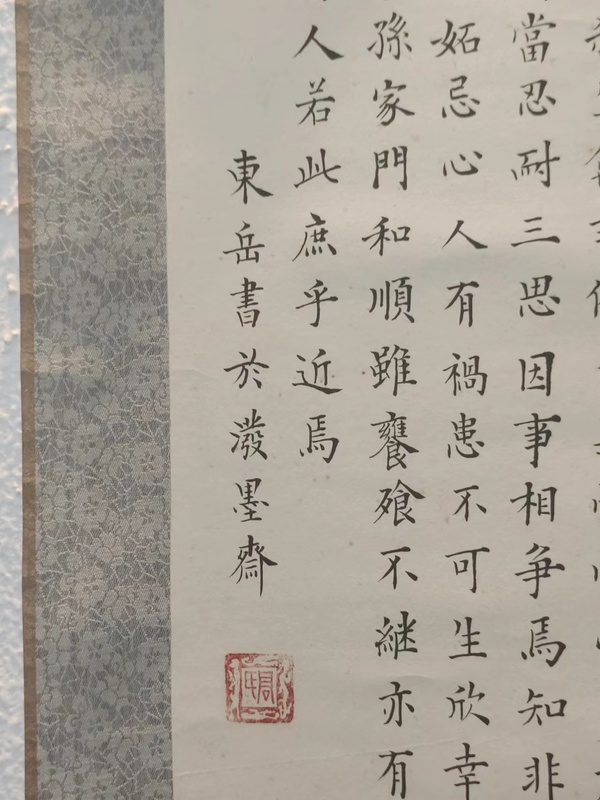 當忍耐三思因事相爭焉知非
妬忌心人有禍患不可生欣幸
孫家門和順雖饔飱不継亦有
人若此庶乎近焉
東岳書於潑墨齋